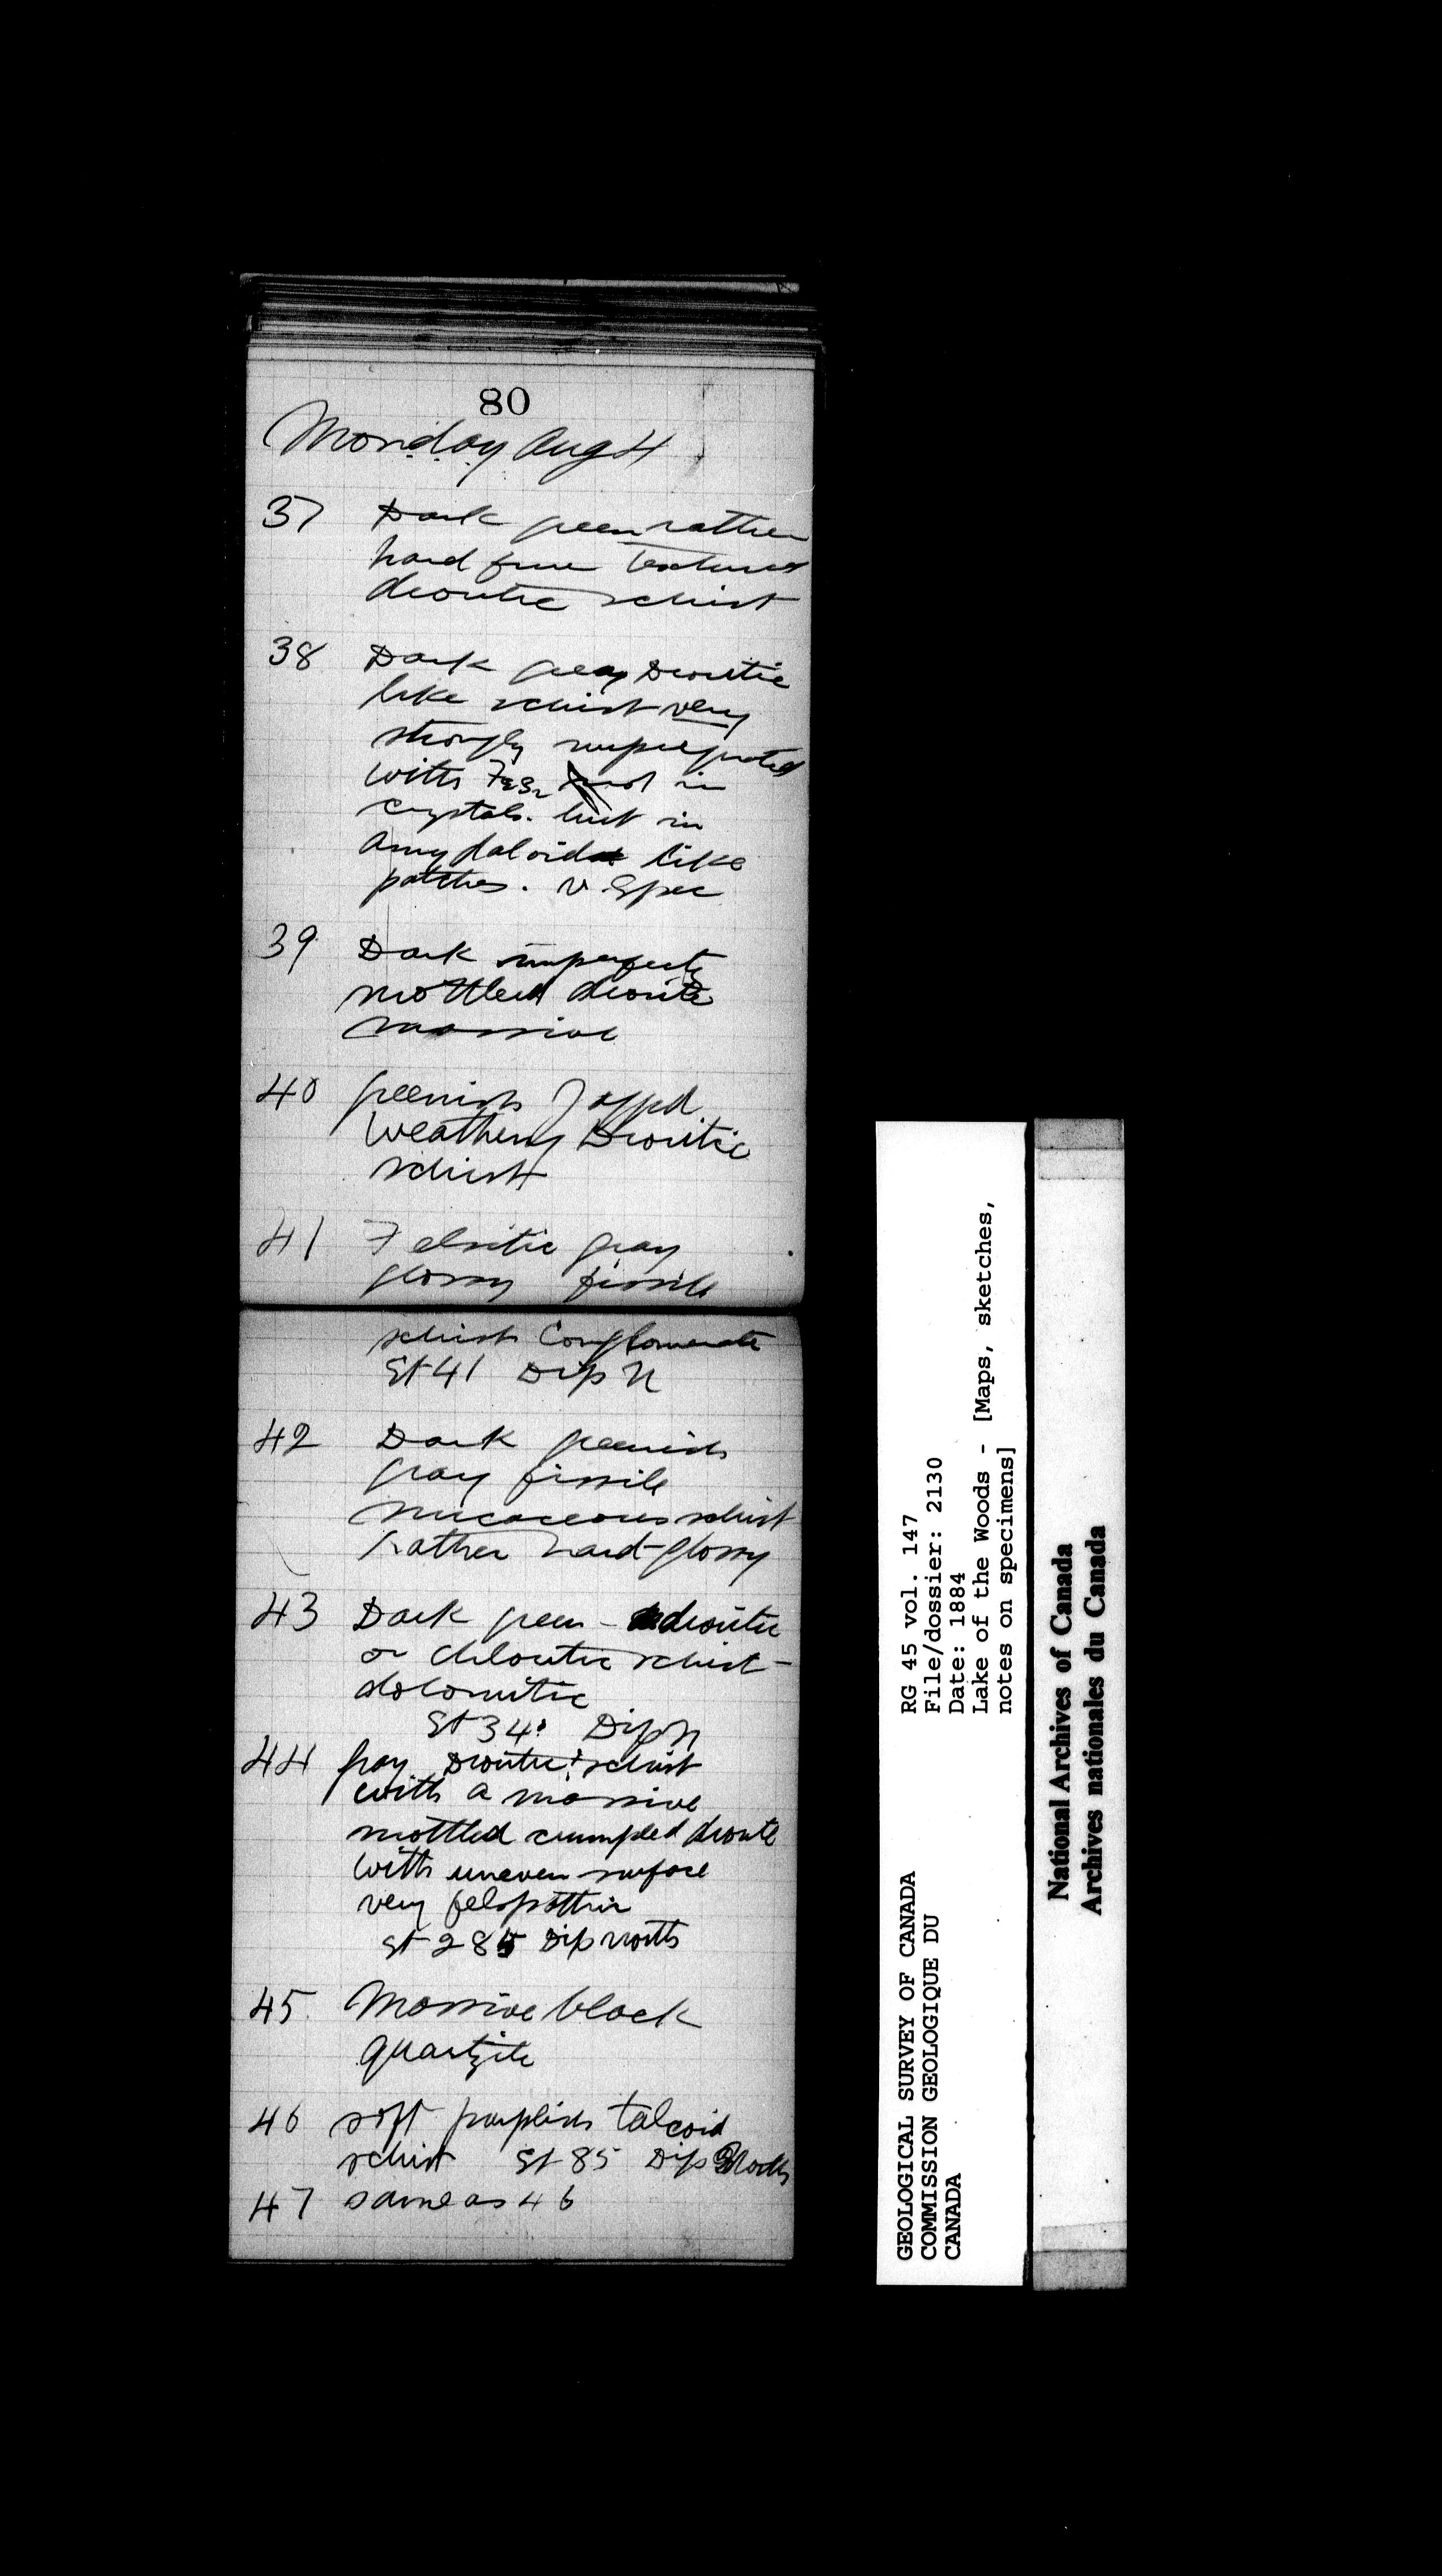 80
Monday Aug 4
37 Dark green rather
hard fine textured
dioritic schist
38 Dark gray Dioritic
like schist very
strongly impregnated
with FeS2 not in
crystals. but in
amygdaloidal like
patches. v. Spec
39 Dark imperfectly
mottled diorite
massive
40 greenish Jagged
weathering Dioritic
schist
41 Felsitic gray
glossy fissile
schist Conglomerate
St 41 Dip N
42 Dark greenish
gray fissile
micaceous schist
rather hard - glossy
43 Dark green - dioritic
or chloritic schist -
dolomitic
St 34° Dip N
44 gray Dioritic? schist
with a massive
mottled crumpled diorite
with uneven surface
very felspathic
St 285 Dip North
45. Massive black
quartzite
46 soft purplish talcoid
schist St 85 Dip North
47 same as 46
GEOLOGICAL SURVEY OF CANADA
COMMISSION GEOLOGIQUE DU
CANADA
RG 45 vol. 147
File/dossier: 2130
Date: 1884
Lake of the Woods - [Maps, sketches,
notes on specimens]
National Archives of Canada
Archives nationales du Canada